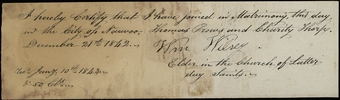 I hereby Certify that I have joined in Matrimony, this day,
in the City of Nauvoo, Thomas Crows and Charity Thorp.
December 21st 1842.
Wm
Elder in the Church of Latter
day Saints.
Jany. 10th 1843.